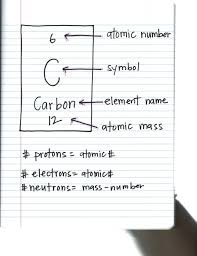 6 atomic number
C symbol
Carbon element name
12 atomic mass
# protons = atomic #
# electrons = atomic #
# neutrons = mass - number